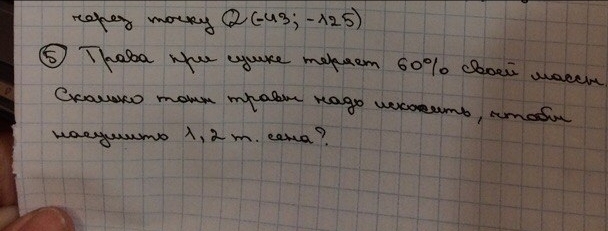 через точку Q (-43; -125)
⑤ Трава при сушке теряет 60% своей массы.
Сколько тонн травы надо искосить, чтобы
насушить 1,2 т. сена?